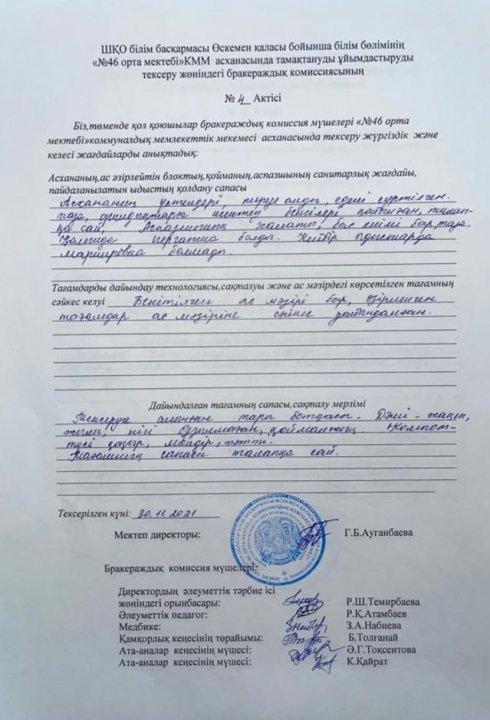 ШҚО білім басқармасы Өскемен қаласы бойынша білім бөлімінің
«№46 орта мектебі»КММ асханасында тамақтануды ұйымдастыруды
тексеру жөніндегі бракераждық комиссиясының
№ 4 Актісі
Біз,төменде қол қоюшылар бракераждық комиссия мүшелері «№46 орта
мектебі»коммуналдық мемлекеттік мекемесі асханасында тексеру жүргіздік және
келесі жағдайларды анықтадық:
Асхананың,ас әзірлейтін блоктың,қойманың,аспазшының санитарлық жағдайы,
пайдаланылатын ыдыстың қолдану сапасы
Асхананың үстелдері, едені сүртілген.
таза,
қа сай. Аспазшының халаты, бас киімі бар, таза.
болды. Кейбір
маркировка болмады.
Тағамдарды дайындау технологиясы,сақталуы және ас мәзірдегі көрсетілген тағамның
сәйкес келуі Бекітілген ас мәзірі бар, әзірленген
тағамдар ас мәзіріне сәйкес дайындалған.
Дайындалған тағамның сапасы,сақталу мерзімі
Тексеруге алынған тарп ботқасы. Дәмі - тәтті,
иісі қоймалжың. Компот-
түсі қоңыр, мөлдір, тәтті.
Тағамның сапасы талапқа сай.
Тексерілген күні: 30.11.2021
Мектеп директоры: Г.Б.Ауганбаева
Бракераждық комиссия мүшелері:
Директордың әлеуметтік тәрбие ісі
жөніндегі орынбасары: Р.Ш.Темирбаева
Әлеуметтік педагог: Р.Қ.Атамбаев
Медбике: З.А.Набиева
Қамқорлық кеңесінің төрайымы: Б.Толғанай
Ата-аналар кеңесінің мүшесі: Ә.Г.Токсентова
Ата-аналар кеңесінің мүшесі: К.Қайрат